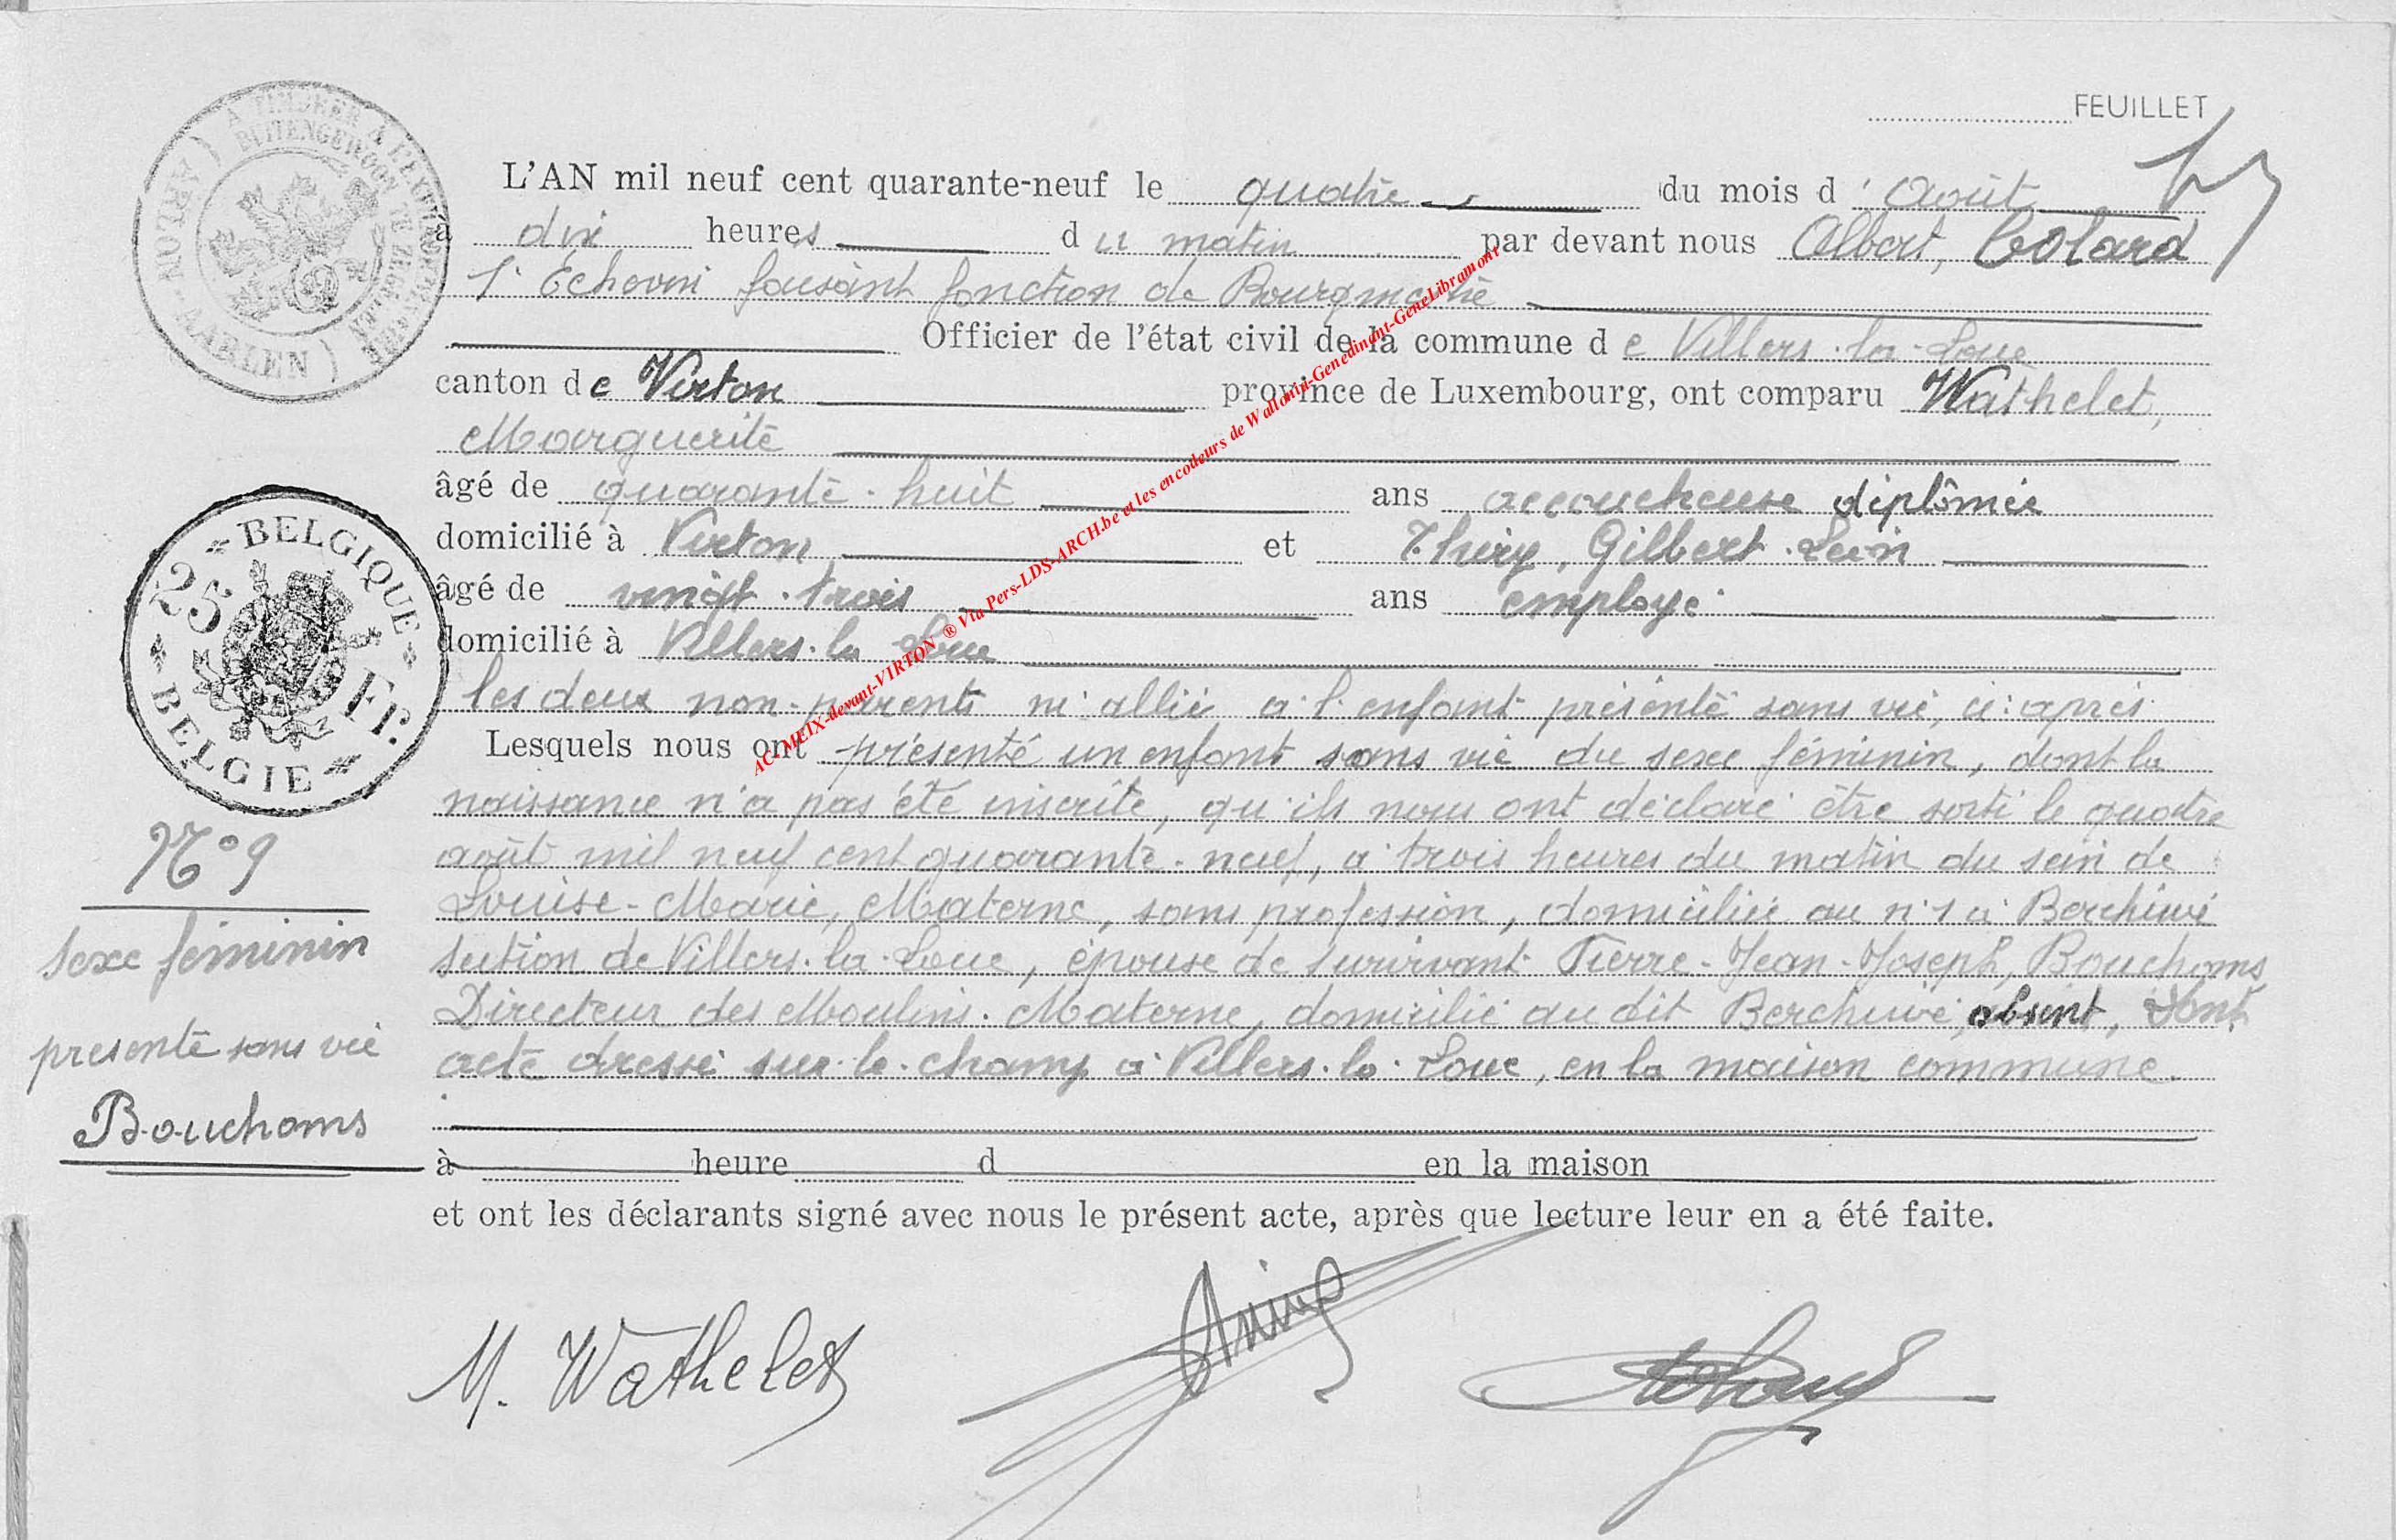 FEUILLET
L'AN mil neuf cent quarante-neuf le quatre du mois d'Août
à dix heures du matin par devant nous Albert, Colard
1r Echevin faisant fonction de Bourgmestre
Officier de l'état civil de la commune de Villers-la-Loue
canton de Virton province de Luxembourg, ont comparu Wathelet,
Marguerite
âgé de quarante-huit ans accoucheuse diplômée
domicilié à Virton et Thiry, Gilbert-Léon
âgé de vingt-trois ans employé
domicilié à Villers-la Loue
les deux non-parents ni allié à l'enfant présenté sans vie, ci-après
Lesquels nous ont présenté un enfant sans vie du sexe féminin, dont la
naissance n'a pas été inscrite, qu'ils nous ont déclaré être sorti le quatre
août mil neuf cent quarante-neuf, à trois heures du matin du sein de
Louise-Marie, Materne, sans profession, domiciliée au n°1 à Berchiwé
section de Villers-la-Loue, épouse de survivant Pierre-Jean-Joseph, Bouchoms
Directeur des Moulins-Materne, domicilié au dit Berchiwé, absent, Dont
acte dressé sur-le-champ à Villers-la-Loue, en la maison commune.
à heure d en la maison
et ont les déclarants signé avec nous le présent acte, après que lecture leur en a été faite.
M. Wathelet
N°9
sexe féminin
présenté sans vie
Bouchoms
BELGIQUE
25 Fr.
BELGIE
ARLON - AARLEN
À TIMBRER À L'EXTRAORDINAIRE
BUITENGEWOON TE ZEGELEN
AC-MEIX-devant-VIRTON ® Via Pers-LDS-ARCH.be et les encodeurs de Wallonia-Genedinant-GeneLibramont